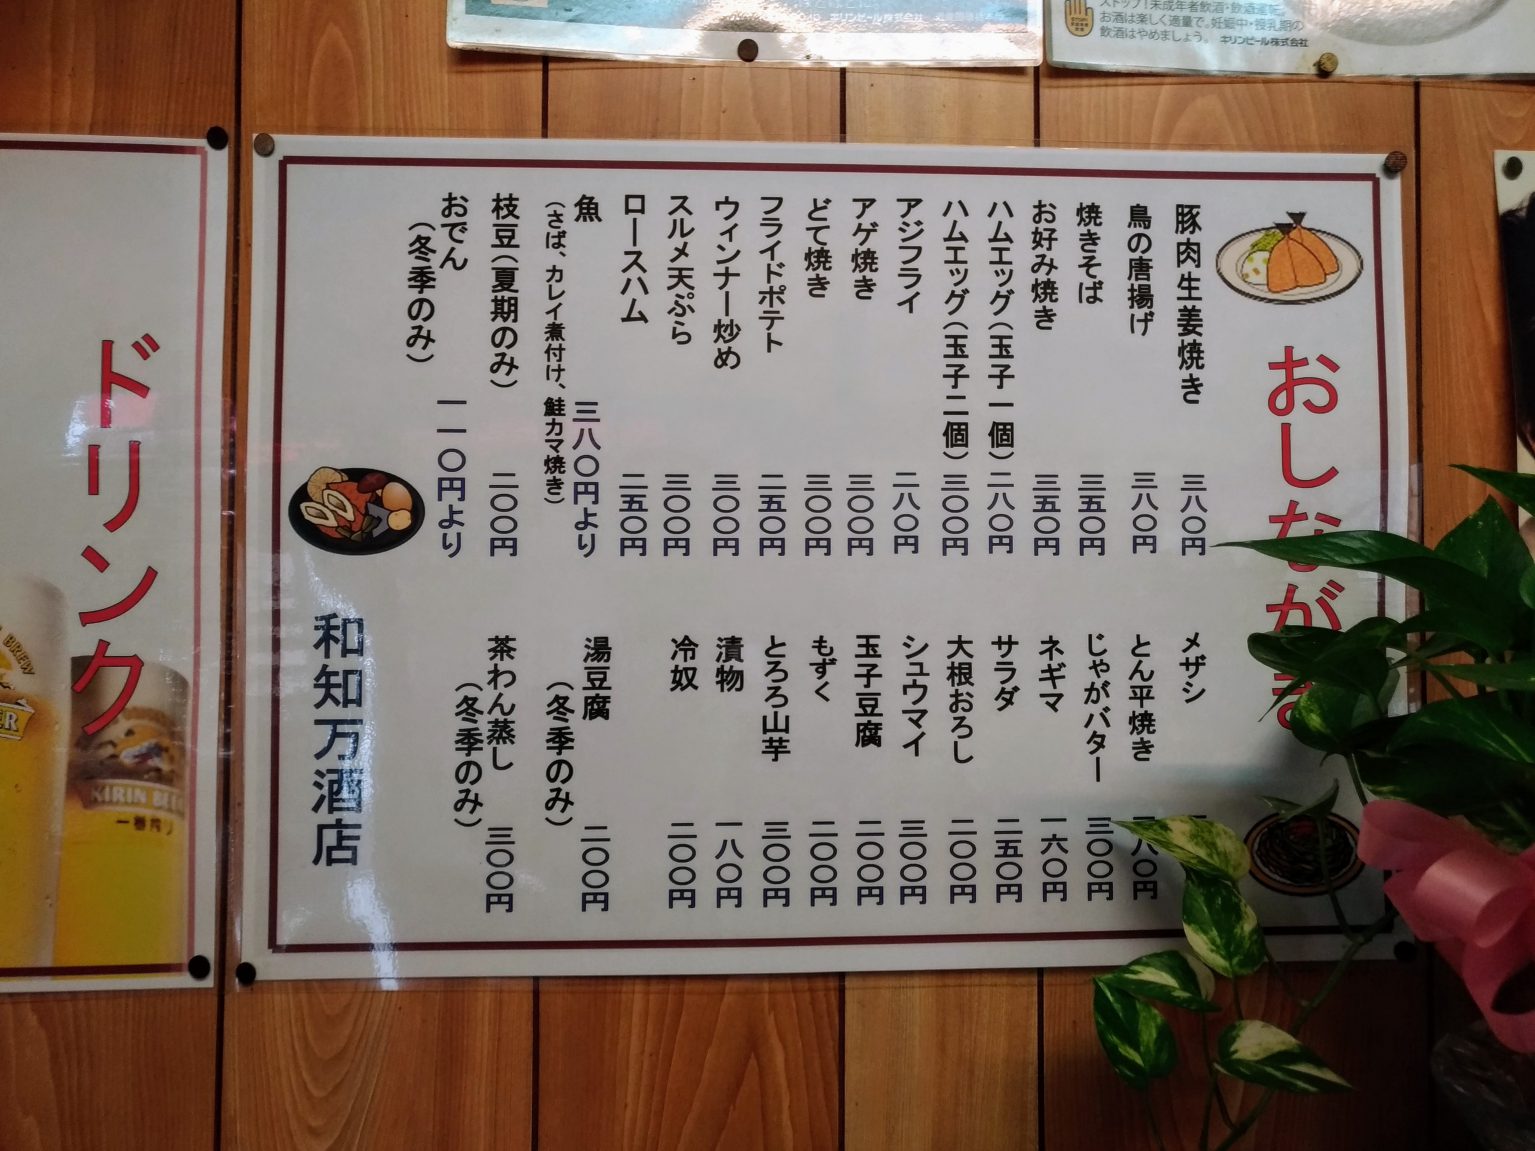 ストップ!未成年者飲酒・飲酒運転。
お酒は楽しく適量で。妊娠中・授乳期の
飲酒はやめましょう。 キリンビール株式会社
キリンビール株式会社
おしながき
豚肉生姜焼き 三八〇円
鳥の唐揚げ 三八〇円
焼きそば 三五〇円
お好み焼き 三五〇円
ハムエッグ(玉子一個) 二八〇円
ハムエッグ(玉子二個) 三〇〇円
アジフライ 二八〇円
アゲ焼き 三〇〇円
どて焼き 三〇〇円
フライドポテト 二五〇円
ウィンナー炒め 三〇〇円
スルメ天ぷら 三〇〇円
ロースハム 二五〇円
魚 三八〇円より
(さば、カレイ煮付け、鮭カマ焼き)
枝豆(夏期のみ) 二〇〇円
おでん 一一〇円より
(冬季のみ)
メザシ
とん平焼き 八〇円
じゃがバター 三〇〇円
ネギマ 一六〇円
サラダ 二五〇円
大根おろし 二〇〇円
シュウマイ 三〇〇円
玉子豆腐 二〇〇円
もずく 二〇〇円
とろろ山芋 三〇〇円
漬物 一八〇円
冷奴 二〇〇円
湯豆腐 二〇〇円
(冬季のみ)
茶わん蒸し 三〇〇円
(冬季のみ)
和知万酒店
ドリンク
KIRIN BEER
一番搾り